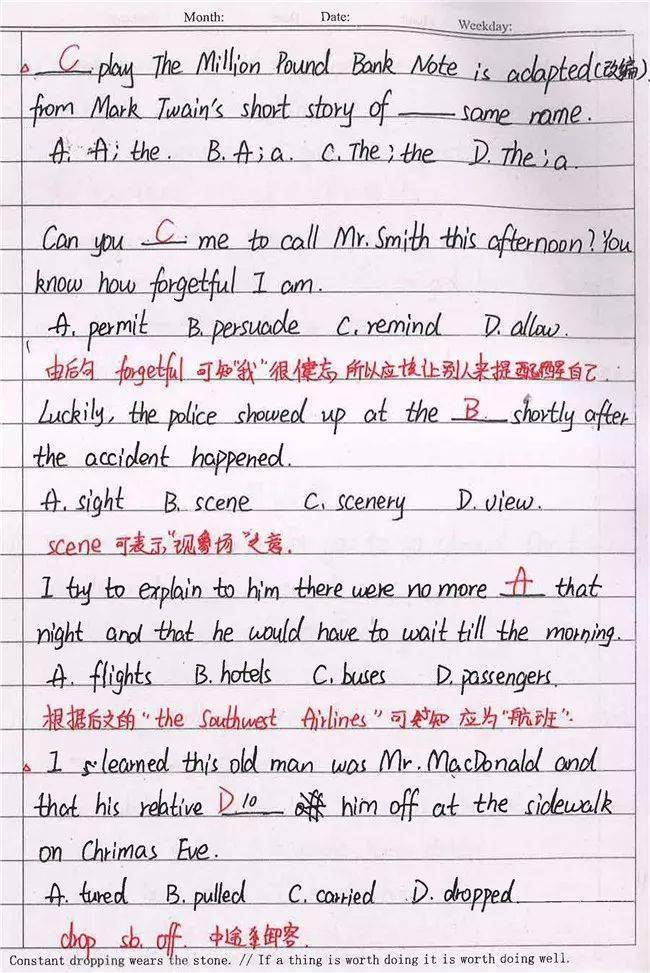 Month: Date: Weekday:
C play The Million Pound Bank Note is adapted(改编)
from Mark Twain's short story of ____ same name.
A. A; the. B. A; a. C. The; the D. The; a.
Can you C me to call Mr. Smith this afternoon? You
know how forgetful I am.
A. permit B. persuade C. remind D. allow.
由后句 forgetful 可知"我"很健忘,所以应该让别人来提醒自己.
Luckily, the police showed up at the B shortly after
the accident happened.
A. sight B. scene C. scenery D. view.
scene 可表示"现场"之意.
I try to explain to him there were no more A that
night and that he would have to wait till the morning.
A. flights B. hotels C. buses D. passengers.
根据后文的"the Southwest Airlines"可知 应为"航班".
I learned this old man was Mr. MacDonald and
that his relative D 10 him off at the sidewalk
on Chrimas Eve.
A. tured B. pulled C. carried D. dropped.
drop sb. off. 中途卸客.
Constant dropping wears the stone. // If a thing is worth doing it is worth doing well.